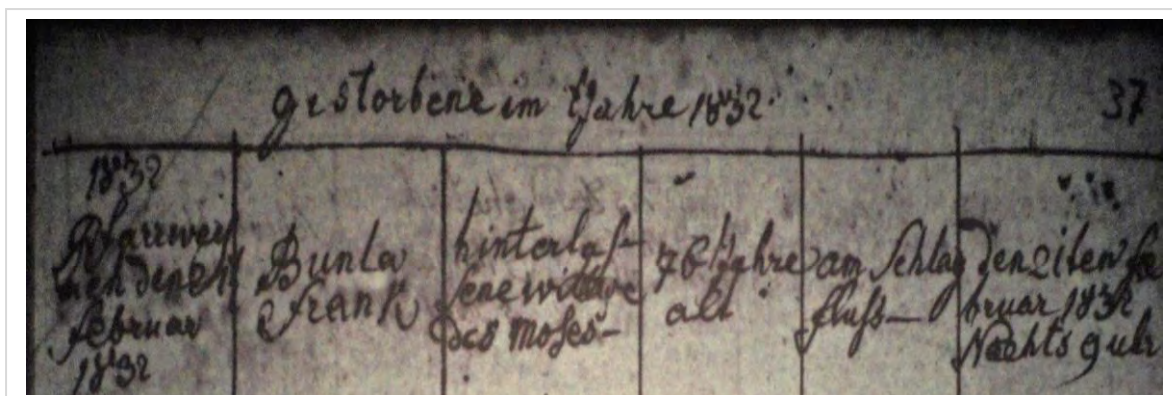 gestorbene im Jahre 1832
37
1832
Pfarrwei
den
februar
1832
Bunla
Frank
hinterlaß-
sene wittwe
des Moses-
76 Jahre
alt
am Schlag
fluß-
Den 21ten fe
bruar 1832
Nachts 9 uhr